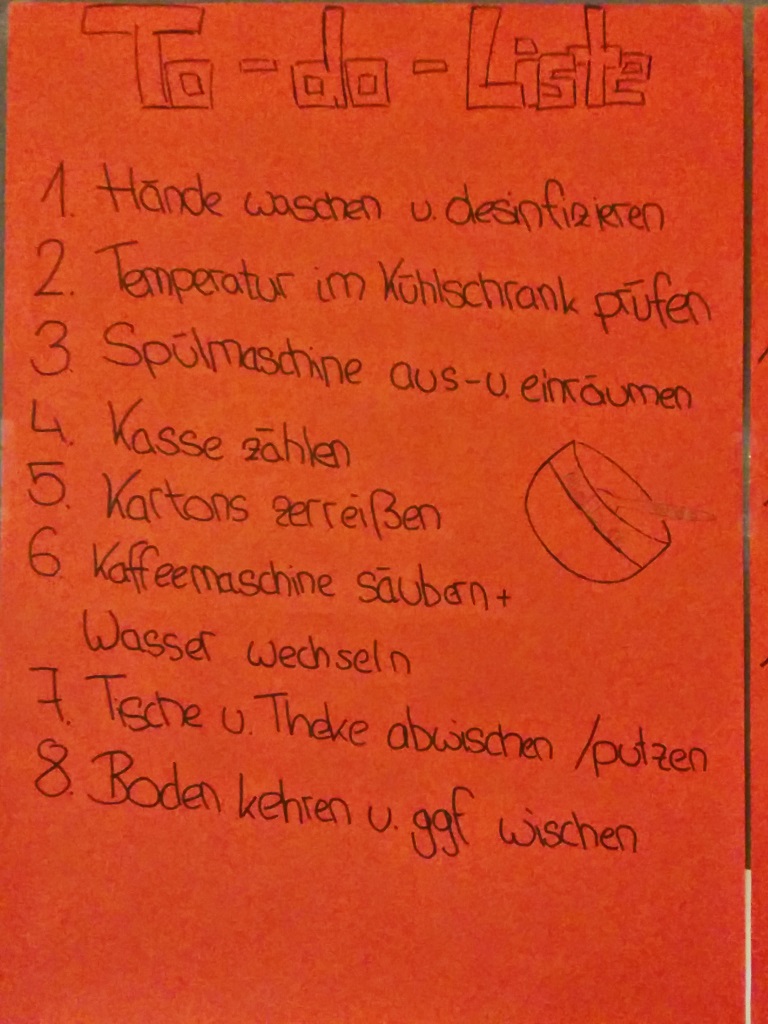 To-do-Liste
1. Hände waschen u. desinfizieren
2. Temperatur im Kühlschrank prüfen
3. Spülmaschine aus-u. einräumen
4. Kasse zählen
5. Kartons zerreißen
6. Kaffeemaschine säubern+
Wasser wechseln
7. Tische u. Theke abwischen /putzen
8. Boden kehren u. ggf wischen